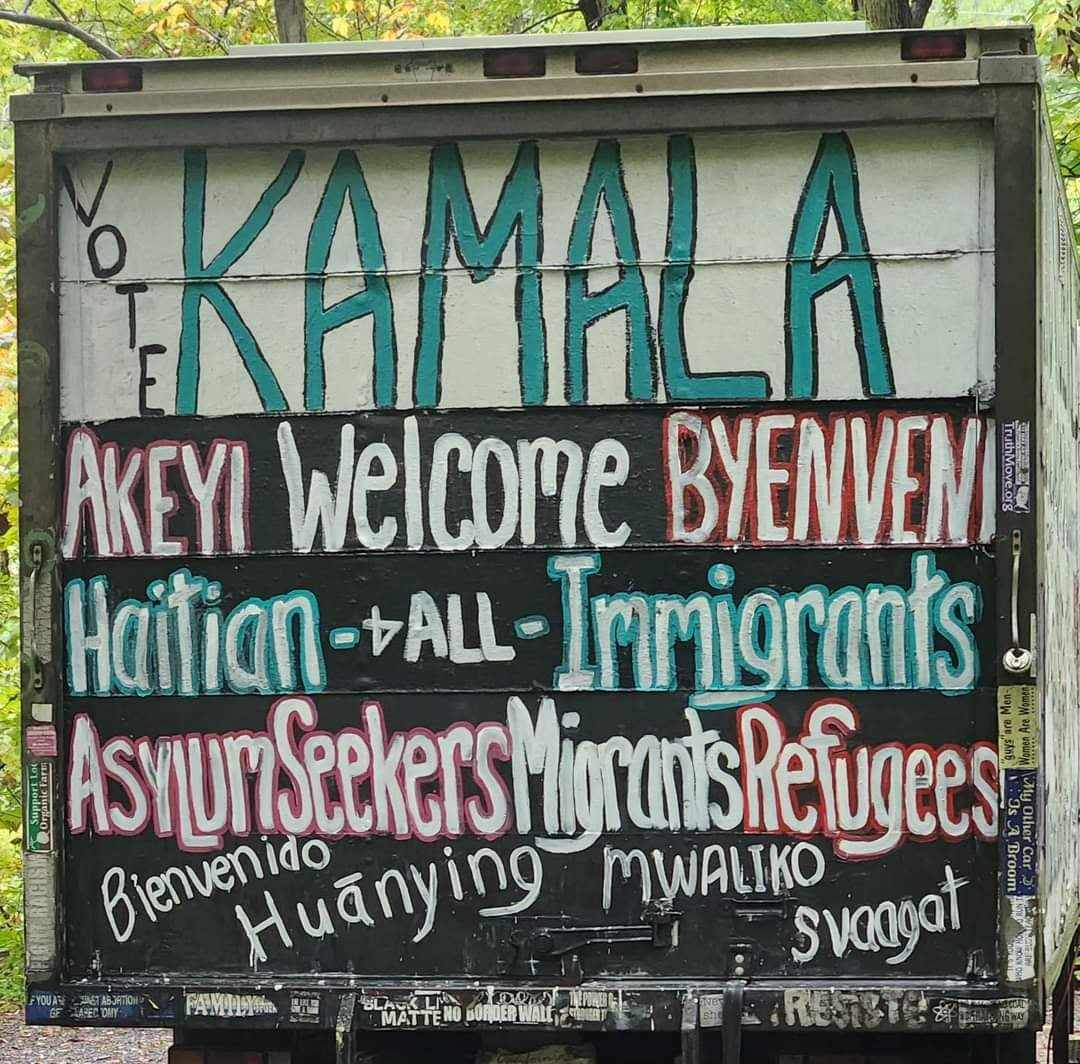 VOTE KAMALA
AKEYI Welcome BYENVENI
Haitian - + ALL - Immigrants
Asylum Seekers Migrants Refugees
Bienvenido
Huānying
MWALIKO
svaagat
TruthMove.org
"guys" are Men
Women Are Women
My Other Car
Is A Broom
Support Local
Organic Farms
FAMILY
BLACK LI
MATTE
NO BORDER WALL
RESIST